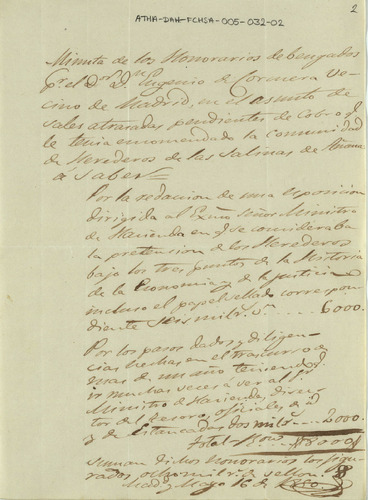 ATHA-DAH-FCHSA-005-032-02
2
Minuta de los Honorarios debengados
pr. el Dor. Dn. Eugenio de Cormera ve-
cino de Madrid, en el asunto de
sales atrasadas pendientes de Cobro q.
le tenia encomendado la comunidad
de Herederos de las Salinas de Añana
a Saber
Por la redacion de una exposicion
dirigida al Exmo Señor Ministro
de Hacienda en q. se consideraba
la pretension de los Herederos
bajo los tres puntos de la Historia
de la Economia y de la justicia
incluso el papel sellado correspon
diente Seis mil rs. vn 6000
Por los pasos dados y diligen
cias hechas en el trascurso de
mas de un año teniendo q.
ir muchas veces á ver al Sr.
Ministro de Hacienda, direc-
tor del Tesoro, oficiales de id
y de Estancadas dos mil rs 2000
Total rs. vn 8000
suman dichos honorarios los figu-
rados ocho mil rs. vellon
Mad. Mayo 16 de 1860